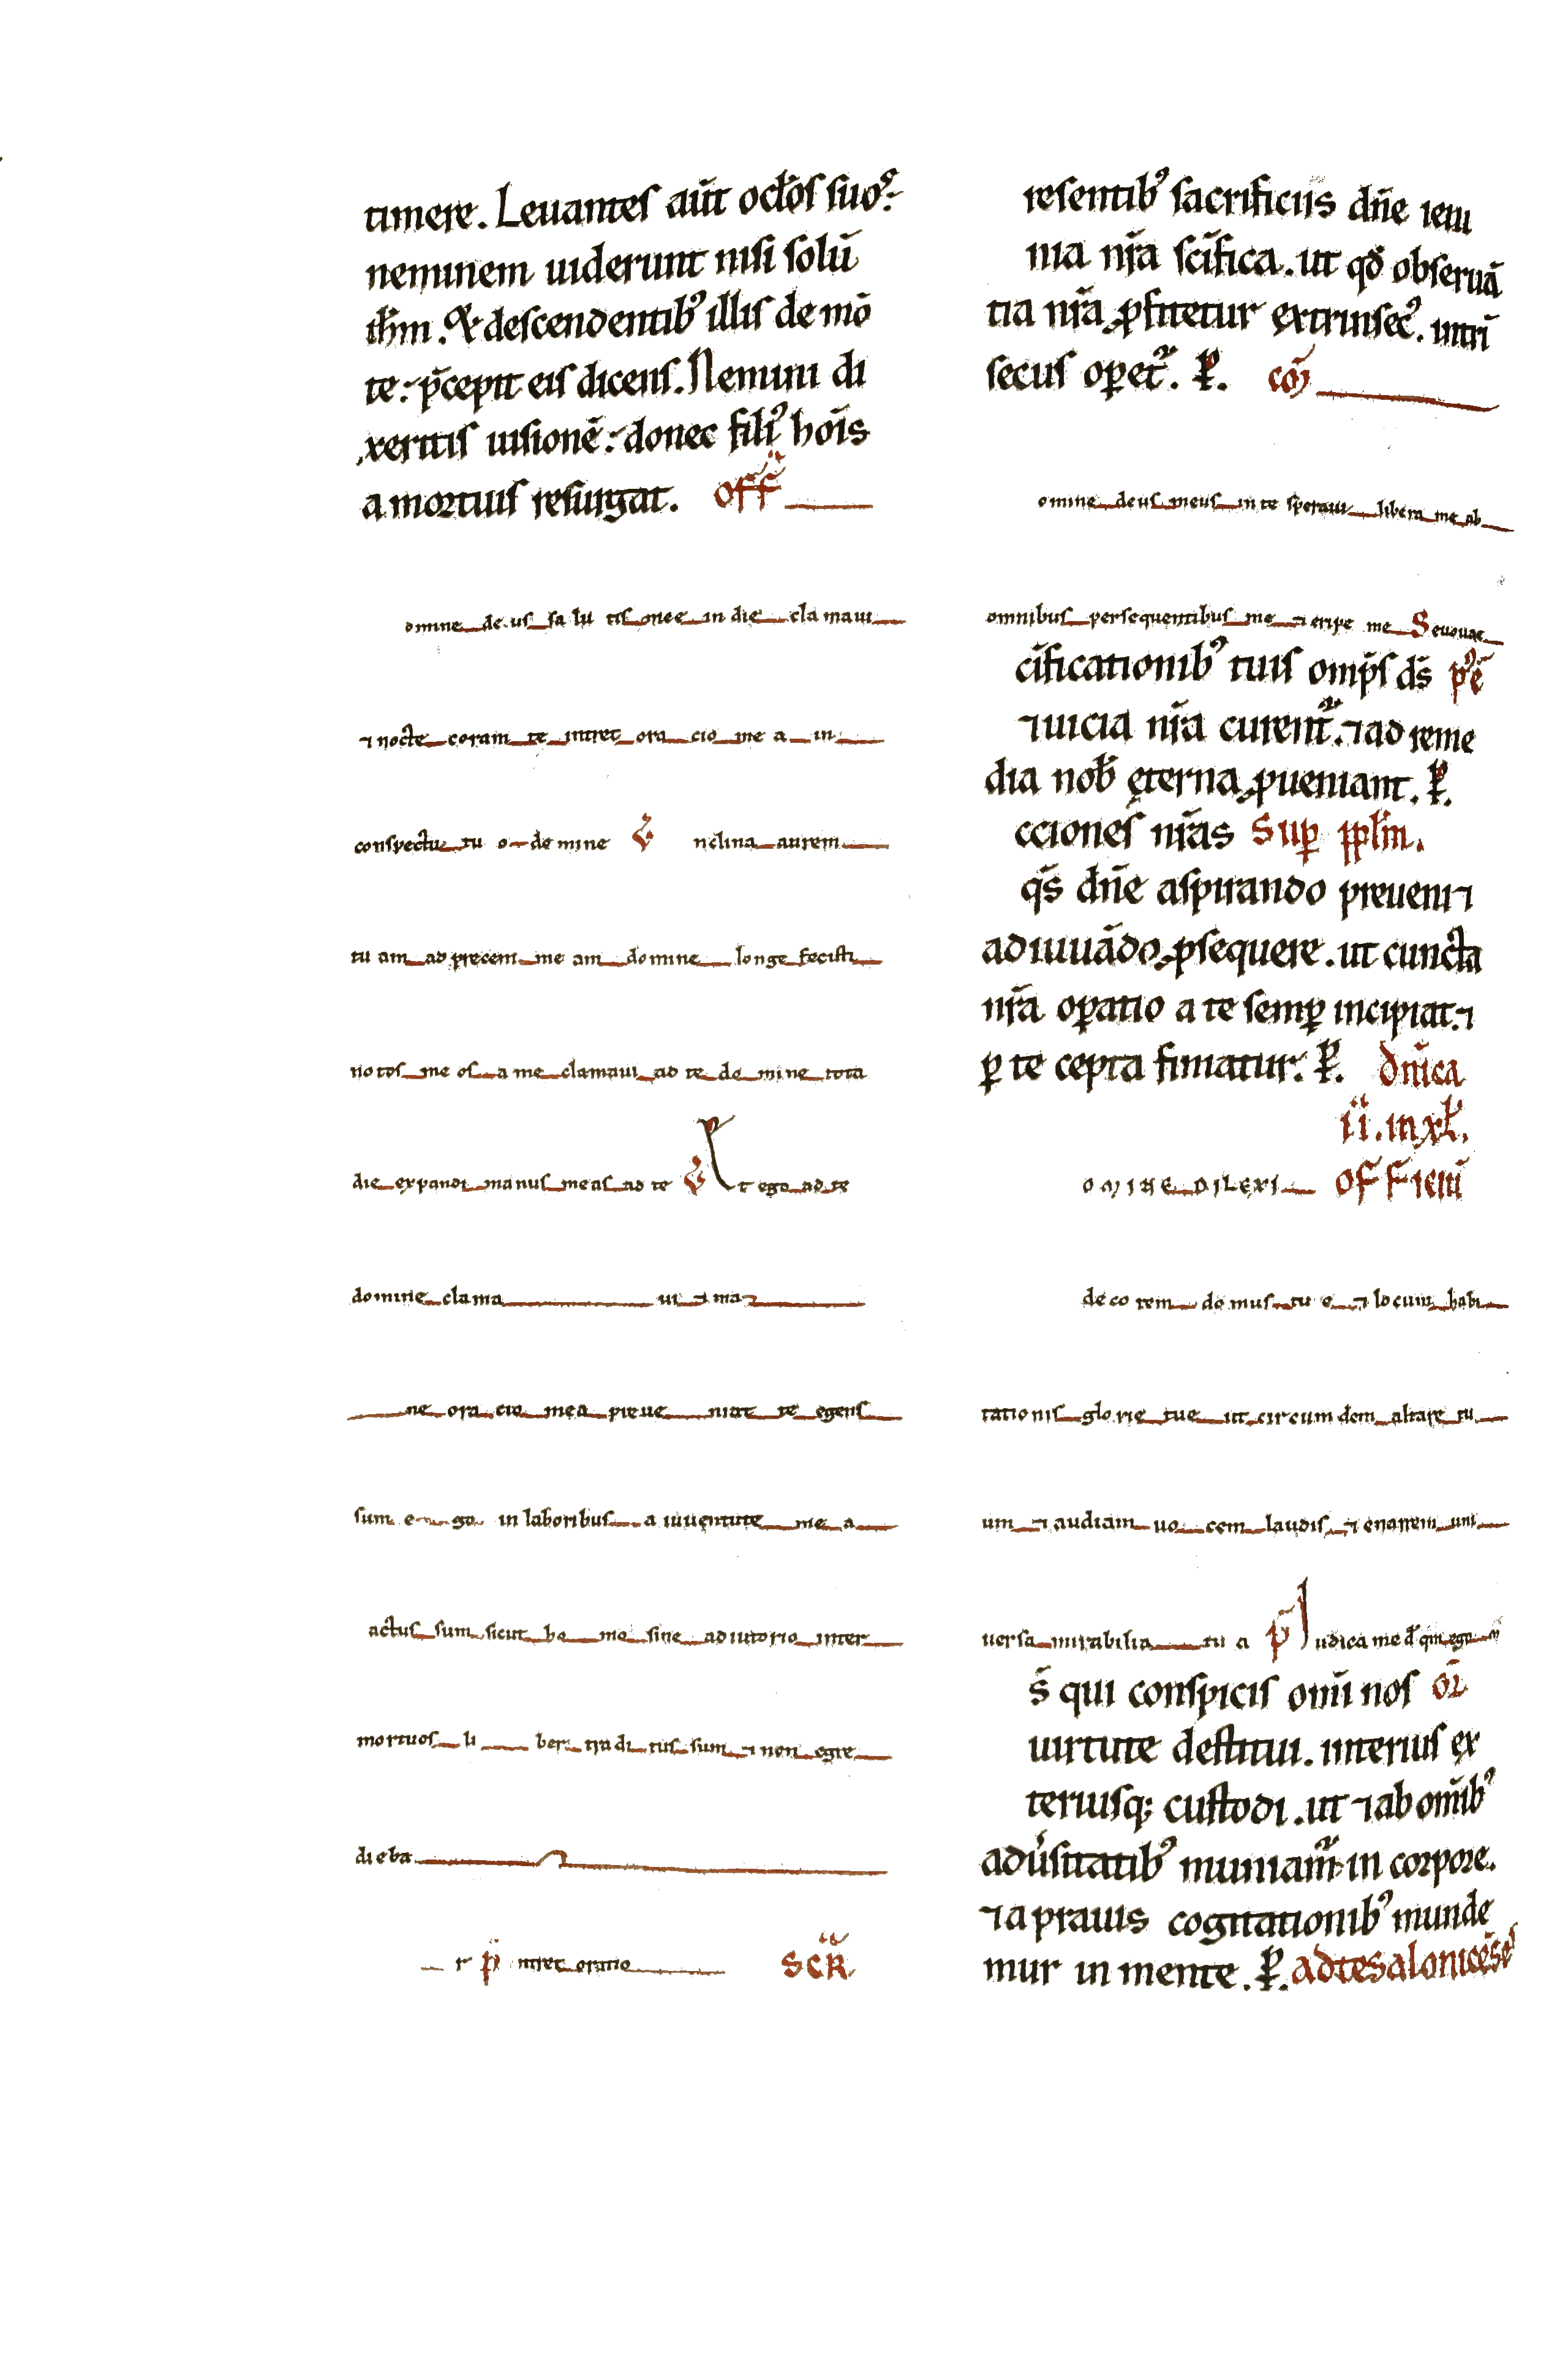 timere. Leuantes aut̄ oc̄los suoꝰ
neminem uiderunt nisi solū
ih̄m. Et descendentibꝰ illis de mō
te p̄cepit eis dicens. Nemini di
xeritis uisionē donec filiꝰ hoīs
a mortuis resurgat. off̄
omine de us sa lu tis mee in die cla maui
⁊ nocte coram te intret ora cio me a in
conspectu tu o do mine ℣ nclina aurem
tu am ad precem me am do mine longe fecisti
no tos me os a me clamaui ad te do mi ne tota
die expandi manus meas ad te ℣ Et ego ad te
domine clama ui ⁊ ma
ne ora cio mea pre ue niat te egens
sum e go in laboribus a iuuentute me a
actus sum sicut ho mo sine adiutorio inter
mortuos li ber tradi tus sum ⁊ non egre
dieba
r p̄ ntret oratio SCR̄
resentibꝰ sacrificiis dn̄e ieiu
nia nr̄a sc̄ifica. ut qd̄ obseruā
tia nr̄a ꝓfitetur extrinsecꝰ. intrī
secus oꝑet᷑. ꝑ. cōm
omine deus meus in te speraui libera me ab
omnibus persequentibus me ⁊ eripe me Seuouae
c̄ificationibꝰ tuis omp̄s ds̄ pꝰc̄
⁊ uicia nr̄a curent᷑. ⁊ ad reme
dia nob̄ ęterna ꝓueniant. ꝑ.
cciones nr̄as Suꝑ ppl̄m.
qs̄ dn̄e aspirando preueni ⁊
adiuuādo ꝓsequere. ut cuncta
nr̄a oꝑatio a te semꝑ incipiat. ⁊
ꝑ te cepta finiatur. ꝑ. dn̄ica
ii. in xl̄.
OMINE DILEXI OFFICIŪ
deco rem do mus tu e ⁊ locum habi
tatio nis glo rie tue ut circum dem altare tu
um ⁊ audiam uo cem laudis ⁊ enarrem uni
uersa mirabilia tu a p̄ Iudica me d̄ qm̄ ego
s̄ qui conspicis om̄i nos or̄
uirtute destitui. interius ex
teriusqꝫ custodi. ut ⁊ ab om̄ibꝰ
adu̓sitatibꝰ muniam᷑ in corpore.
⁊ a prauis cogitationibꝰ munde
mur in mente. ꝑ. ad tesalonicēses